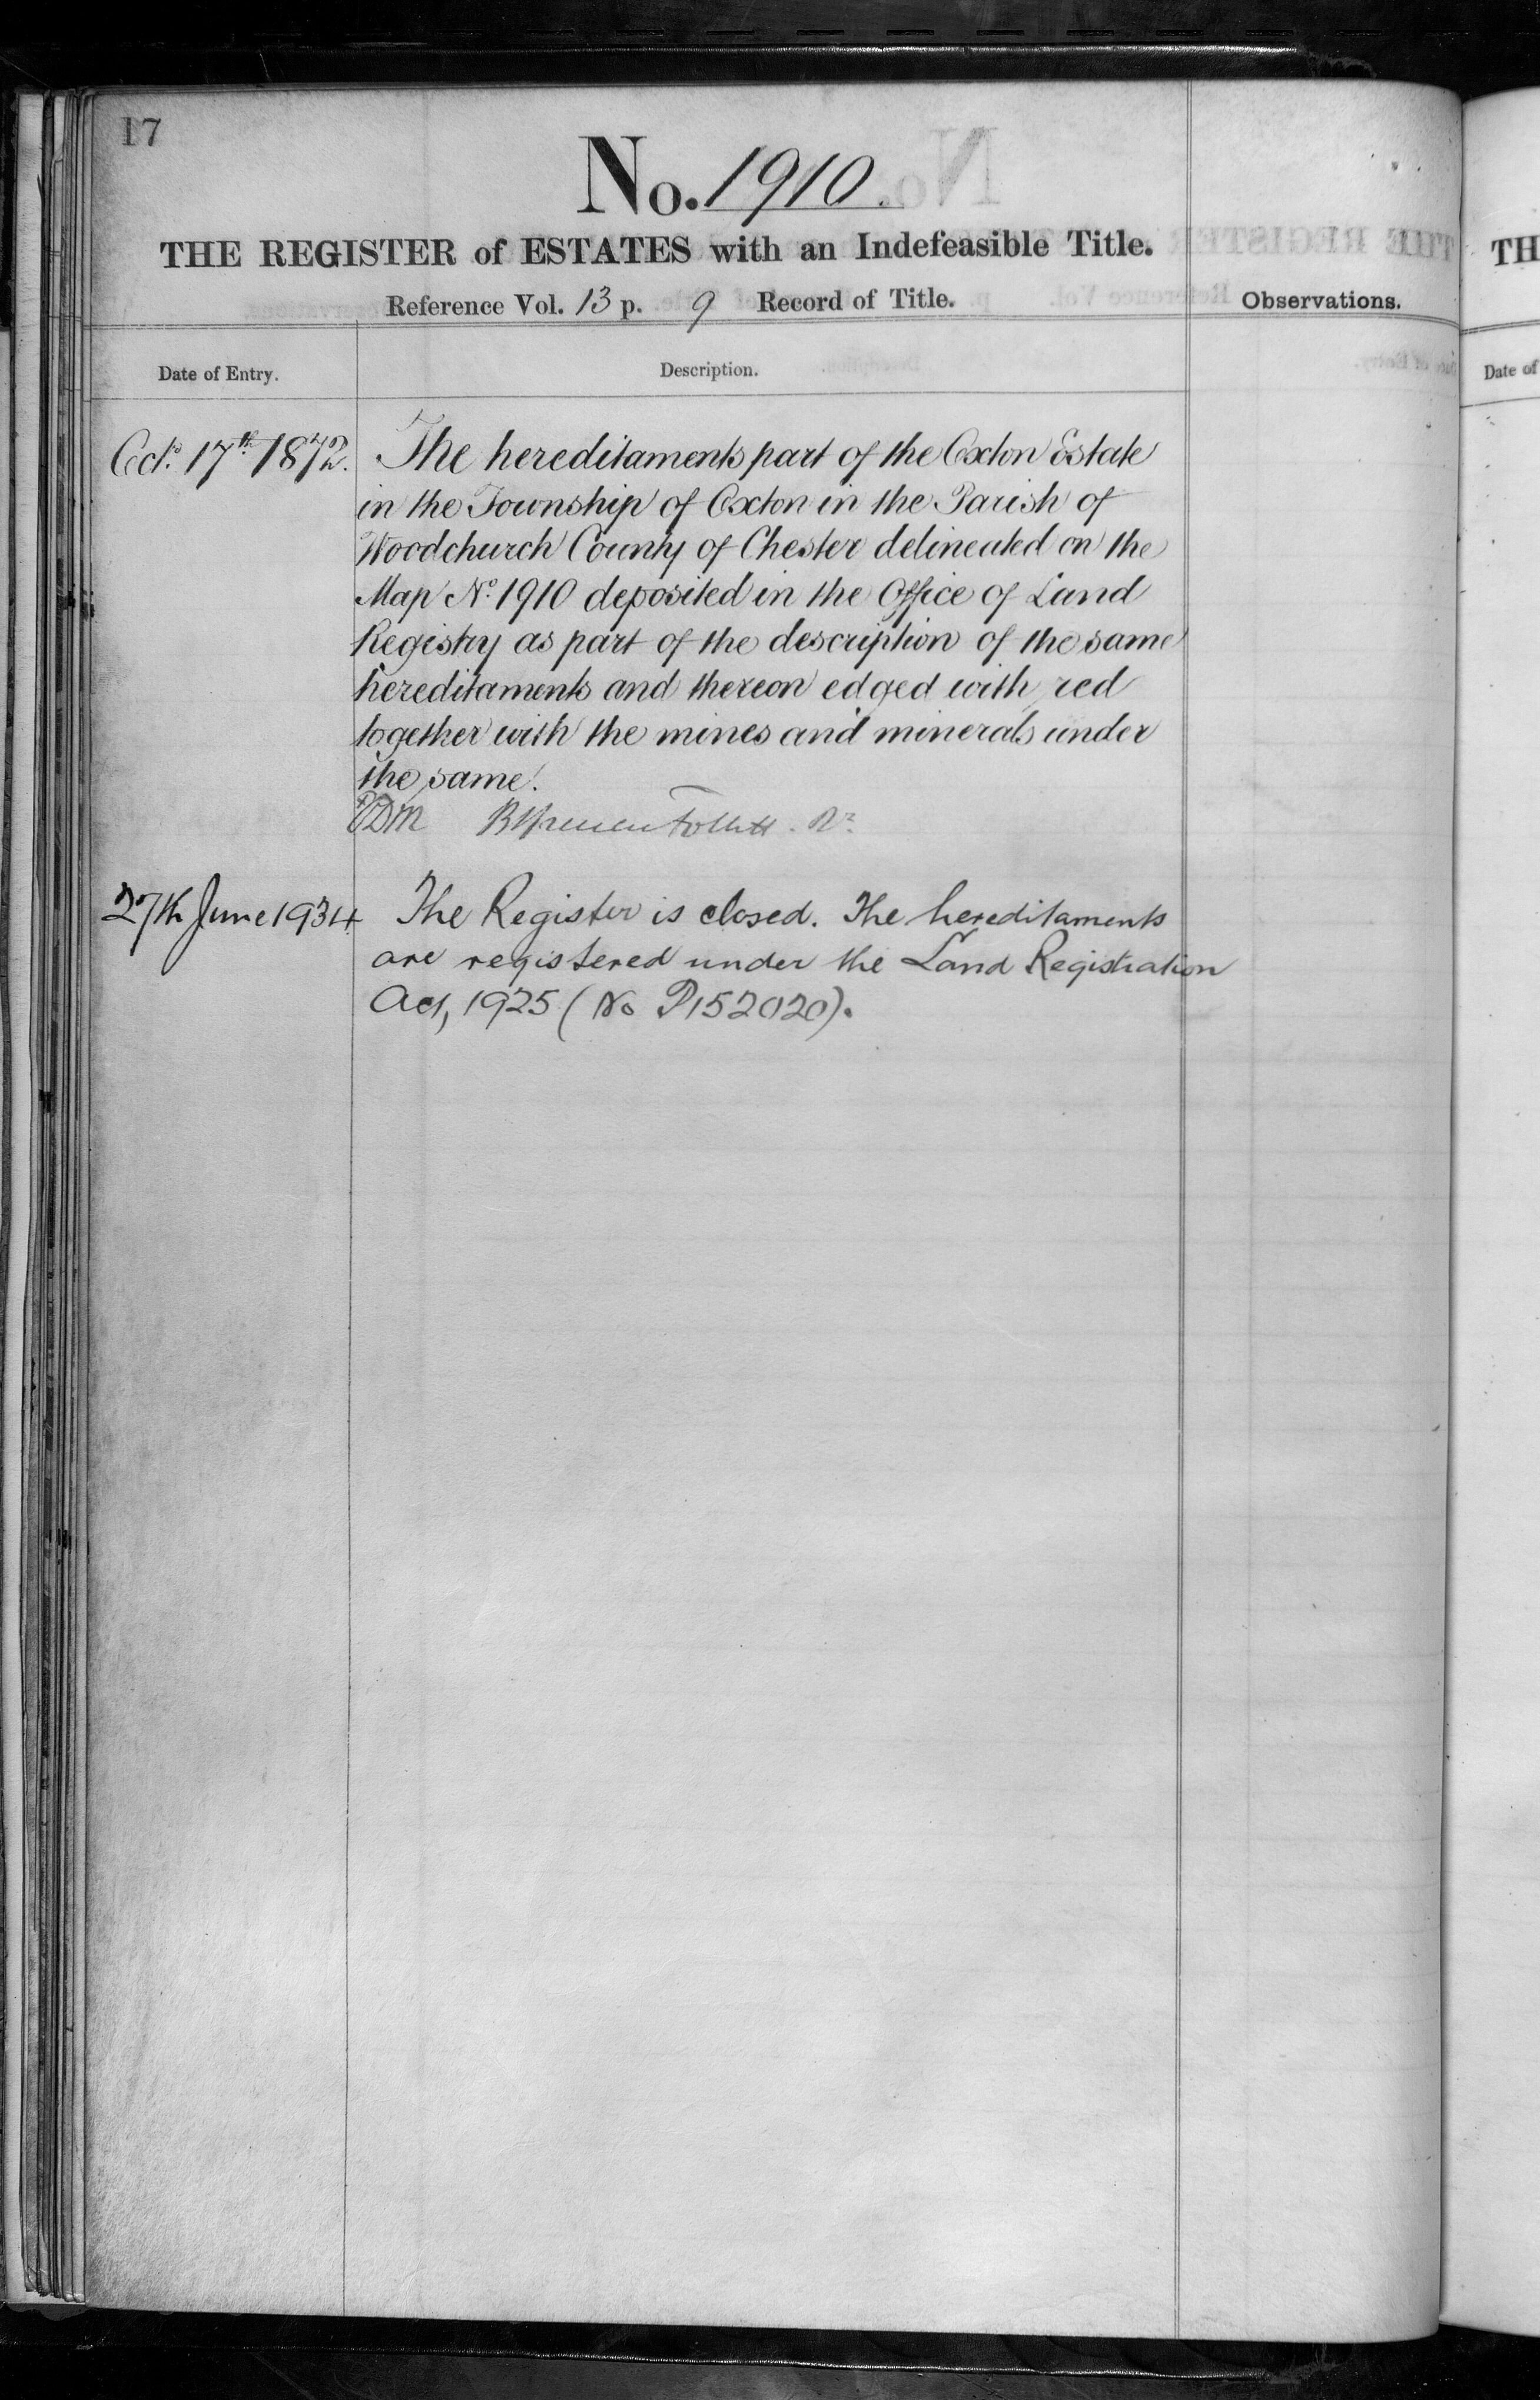 17
No. 1910
THE REGISTER of ESTATES with an Indefeasible Title.
Reference Vol. 13 p. 9 Record of Title.
Observations.
Date of Entry.
Description.
Octr. 17th 1872.
The hereditaments part of the Oxton Estate
in the Township of Oxton in the Parish of
Woodchurch County of Chester delineated on the
Map No. 1910 deposited in the Office of Land
Registry as part of the description of the same
hereditaments and thereon edged with red
together with the mines and minerals under
the same.
Follett
27th June 1934
The Register is closed. The hereditaments
are registered under the Land Registration
Act, 1925 (No P152020).
TH
Date of